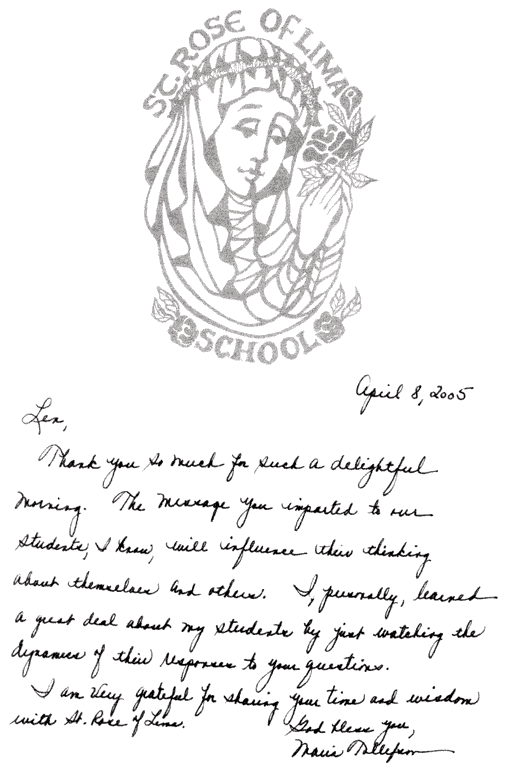 ST. ROSE OF LIMA
SCHOOL
April 8, 2005
Len,
Thank you so much for such a delightful
morning. The message you imparted to our
students, I know, will influence their thinking
about themselves and others. I, personally, learned
a great deal about my students by just watching the
dynamics of their responses to your questions.
I am very grateful for sharing your time and wisdom
with St. Rose of Lima.
God bless you,